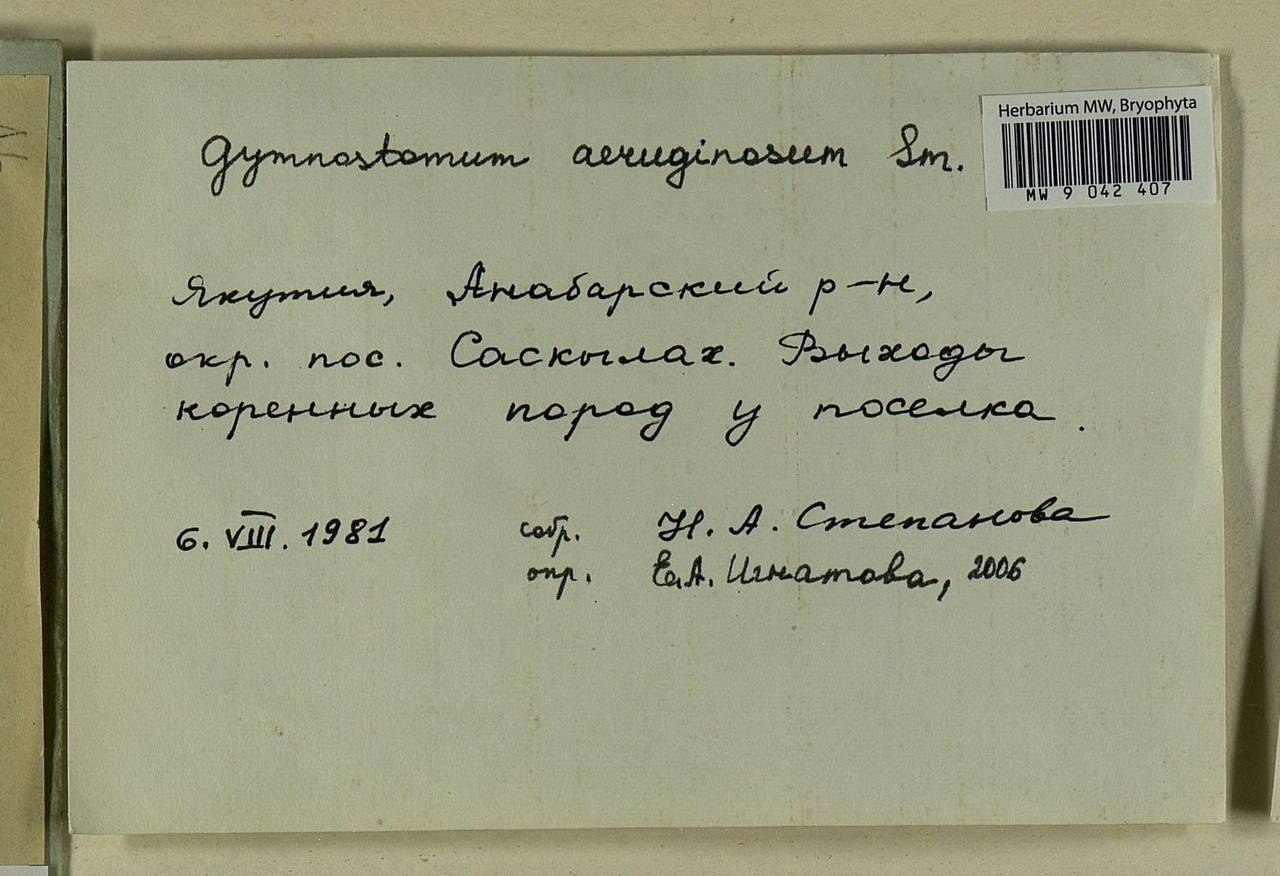 Herbarium MW, Bryophyta
MW 9 042 407
Gymnostomum aeruginosum Sm.
Якутия, Анабарский р-н,
окр. пос. Саскылах. Выходы
коренных пород у поселка.
6. VIII. 1981 собр. Н. А. Степанова
опр. Е.А. Игнатова, 2006